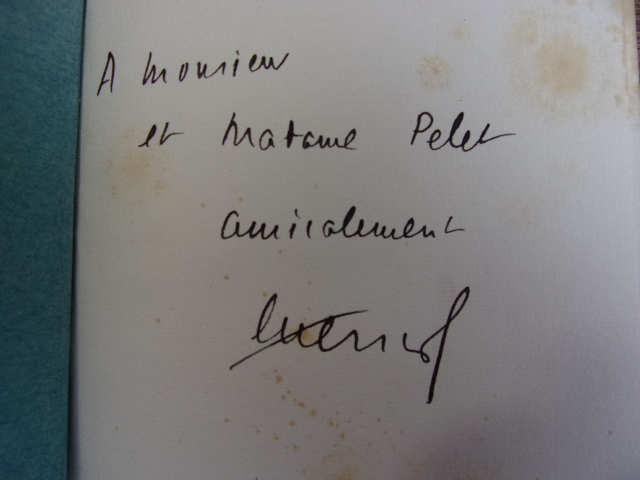 A Monsieur
et Madame Pelet
amicalement